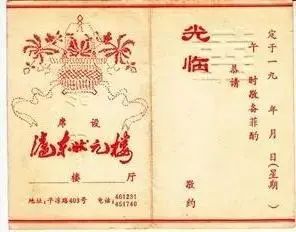 定于一九　年　月　日(星期　)
午　时敬备菲酌
恭请
光临
敬约
席设
沪东状元楼
楼　厅
地址:平凉路403号　电话:461231
451740